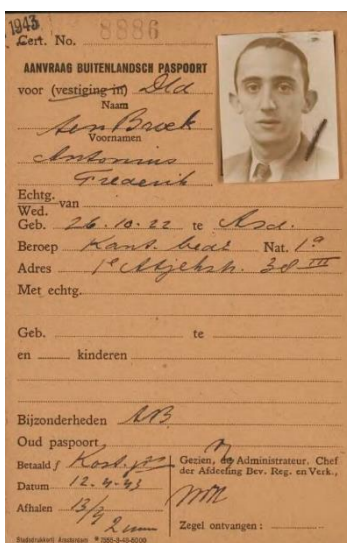 1943
Cert. No. 8886
AANVRAAG BUITENLANDSCH PASPOORT
voor (vestiging in) Dld
Naam
ten Broek
Voornamen
Antonius
Frederik
Echtg. van
Wed.
Geb. 26.10.22 te Asd.
Beroep Kant. bed. Nat. 1a
Adres 1e Atjehstr. 38 III
Met echtg.
Geb. te
en kinderen
Bijzonderheden AB
Oud paspoort
Betaald Kost.
Datum 12.4.43
Afhalen 13/4
2 uur
Gezien, de Administrateur. Chef
der Afdeeling Bev. Reg. en Verk.,
Zegel ontvangen :
Stadsdrukkerij Amsterdam